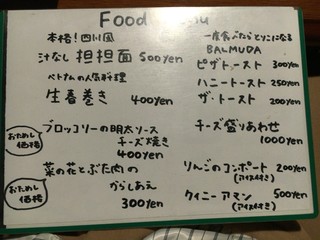 Food Menu
本格!四川風
汁なし 担担面 500yen
ベトナムの人気料理
生春巻き 400yen
おためし価格
ブロッコリーの明太ソース
チーズ焼き
400yen
おためし価格
菜の花とぶた肉の
からしあえ
300yen
一度食べたらとりこになる
BALMUDA
ピザトースト 300yen
ハニートースト 250yen
ザ・トースト 200yen
チーズ盛りあわせ
1000yen
りんごのコンポート 200yen
(アイス付き)
クイニーアマン 500yen
(アイス付き)